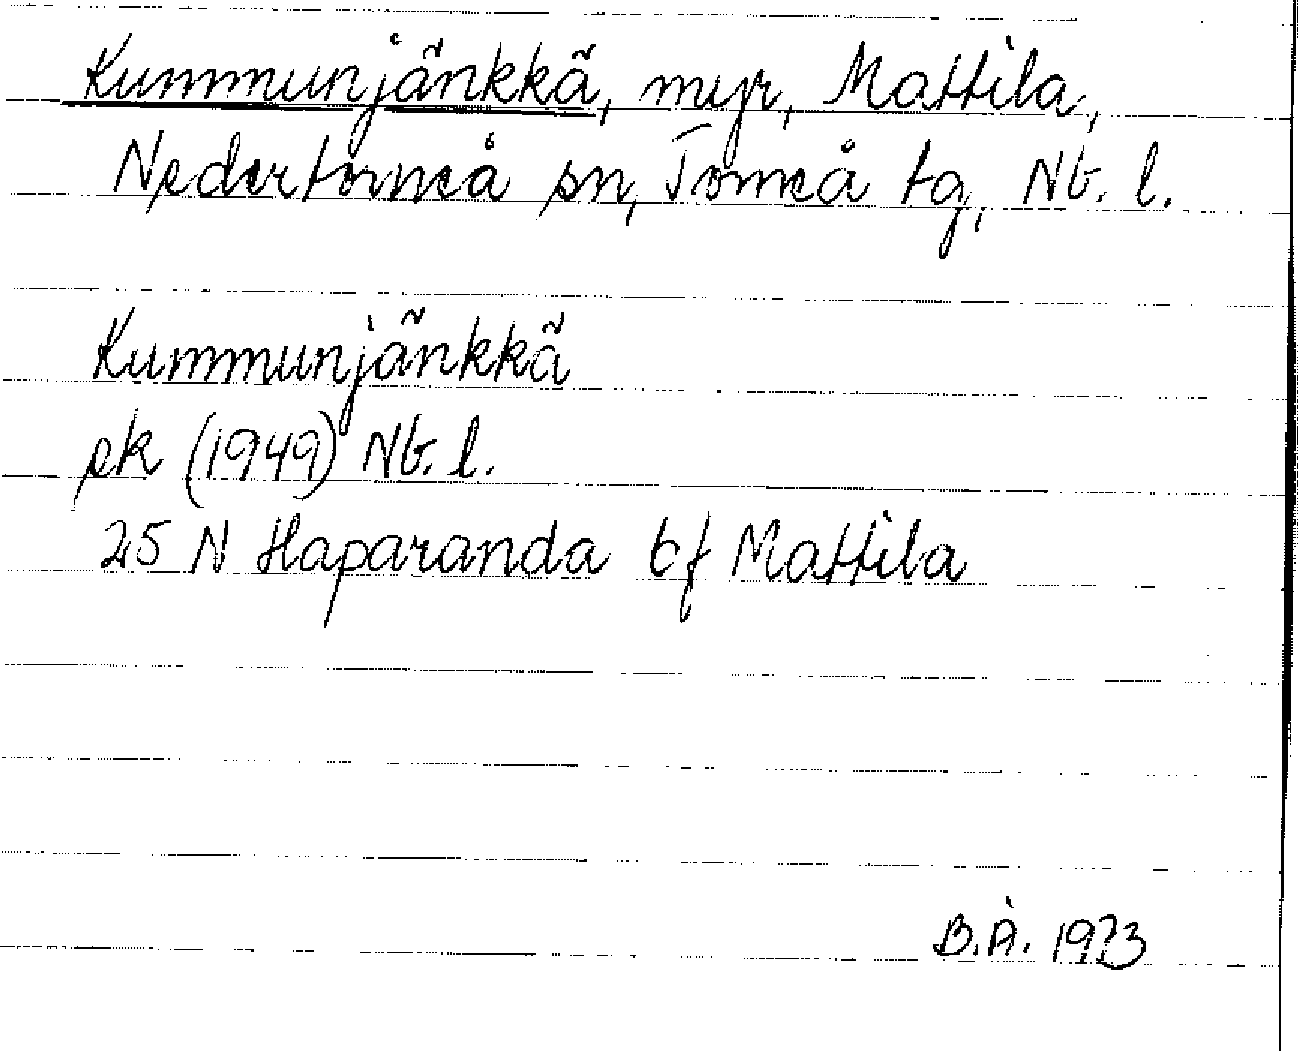 Kummunjänkkä, myr, Mattila,
Nedertorneå sn, Torneå tg, Nb. l.
Kummunjänkkä
ek (1949) Nb. l.
25 N Haparanda bf Mattila
B.Å. 1973